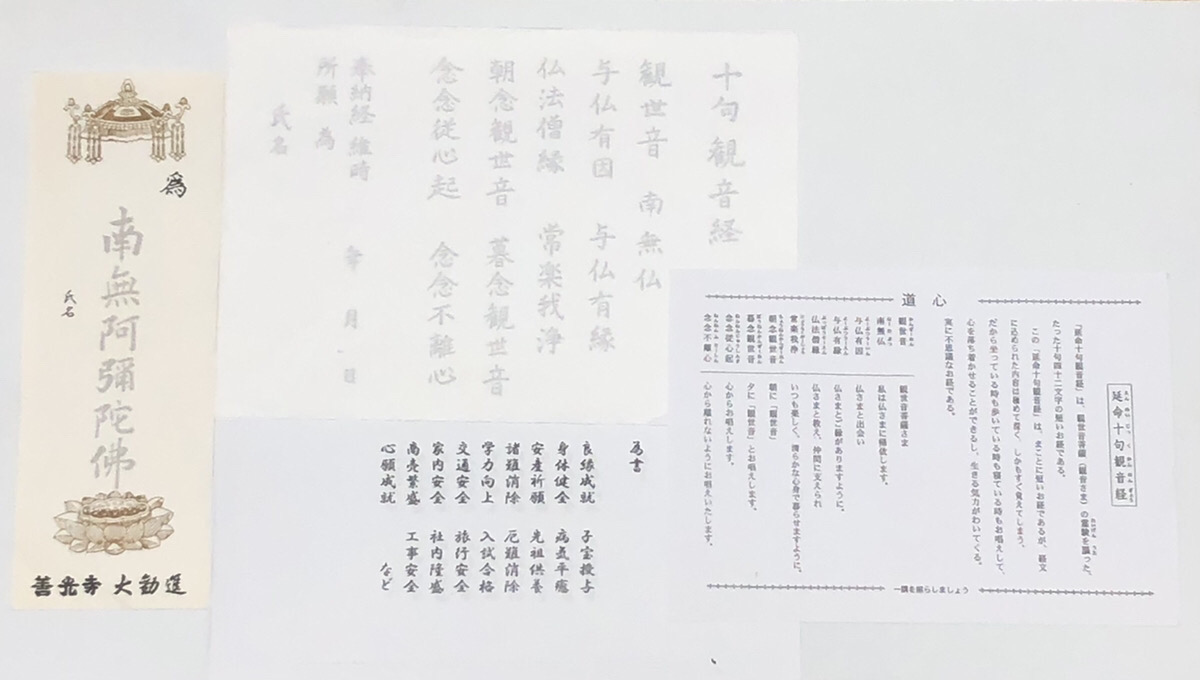 為
南無阿彌陀佛
氏名
善光寺 大勧進
十句観音経
観世音 南無仏
与仏有因 与仏有縁
仏法僧縁 常楽我浄
朝念観世音 暮念観世音
念念従心起 念念不離心
奉納経 維時 年 月 日
所願 為
氏名
為書
良縁成就 子宝授与
身体健全 病気平癒
安産祈願 先祖供養
諸難消除 厄難消除
学力向上 入試合格
交通安全 旅行安全
家内安全 社内隆盛
商売繁盛 工事安全
心願成就 など
道 心
延命十句観音経
「延命十句観音経」は、観世音菩薩(観音さま)の霊験を讃った、
たった十句四十二文字の短いお経である。
この「延命十句観音経」は、まことに短いお経であるが、経文
に込められた内容は極めて尊く、しかもすぐ覚えてしまう。
だから坐っている時も歩いている時も寝ている時もお唱えして、
心を落ち着かせることができるし、生きる気力がわいてくる。
実に不思議なお経である。
観世音 観世音菩薩さま
南無仏 私は仏さまに帰依します。
与仏有因 仏さまと出会い
与仏有縁 仏さまとご縁がありますように。
仏法僧縁 仏さまと教え、仲間に支えられ
常楽我浄 いつも楽しく、清らかな心身で暮らせますように。
朝念観世音 朝に「観世音」
暮念観世音 夕に「観世音」とお唱えします。
念念従心起 心からお唱えします。
念念不離心 心から離れないようにお唱えいたします。
一隅を照らしましょう